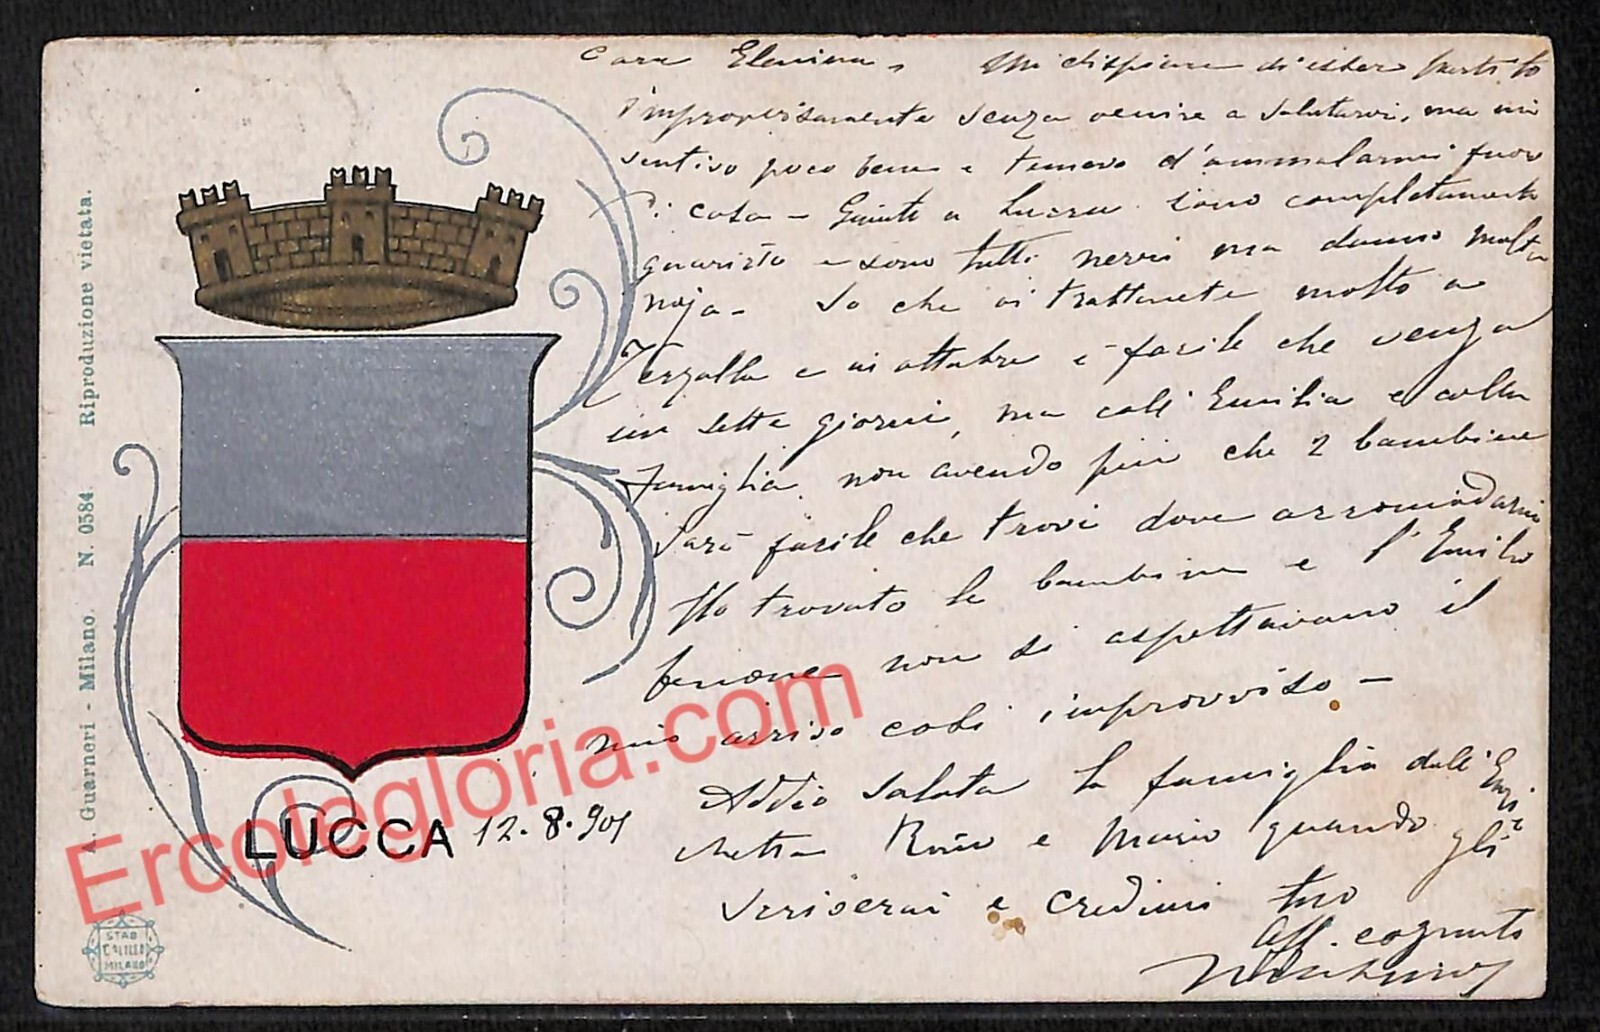 Cara Elenina, Mi dispiace di esser partito
improvvisamente senza venire a salutarvi, ma mi
sentivo poco bene e temevo d'ammalarmi fuor
di casa - Giunto a Lucca sono completamente
guarito e sono tutti nervi ma danno molta
noja - So che vi tratterrete molto a
e in ottobre è facile che venga
un sette giorni, ma coll'Emilia e colla
famiglia, non avendo più che 2 bambine
sarà facile che trovi dove accomodarmi
Ho trovato le bambine e l'Emilia
benone non si aspettavano il
mio arrivo così improvviso -
Addio saluta la famiglia dell'Enri
chetta e Mario quando gli
scriverai e credimi tuo
Aff. cognato
A. Guarneri - Milano. N. 0584. Riproduzione vietata.
LUCCA 12.8.901
STAB
GALILEO
MILANO
Ercolegloria.com